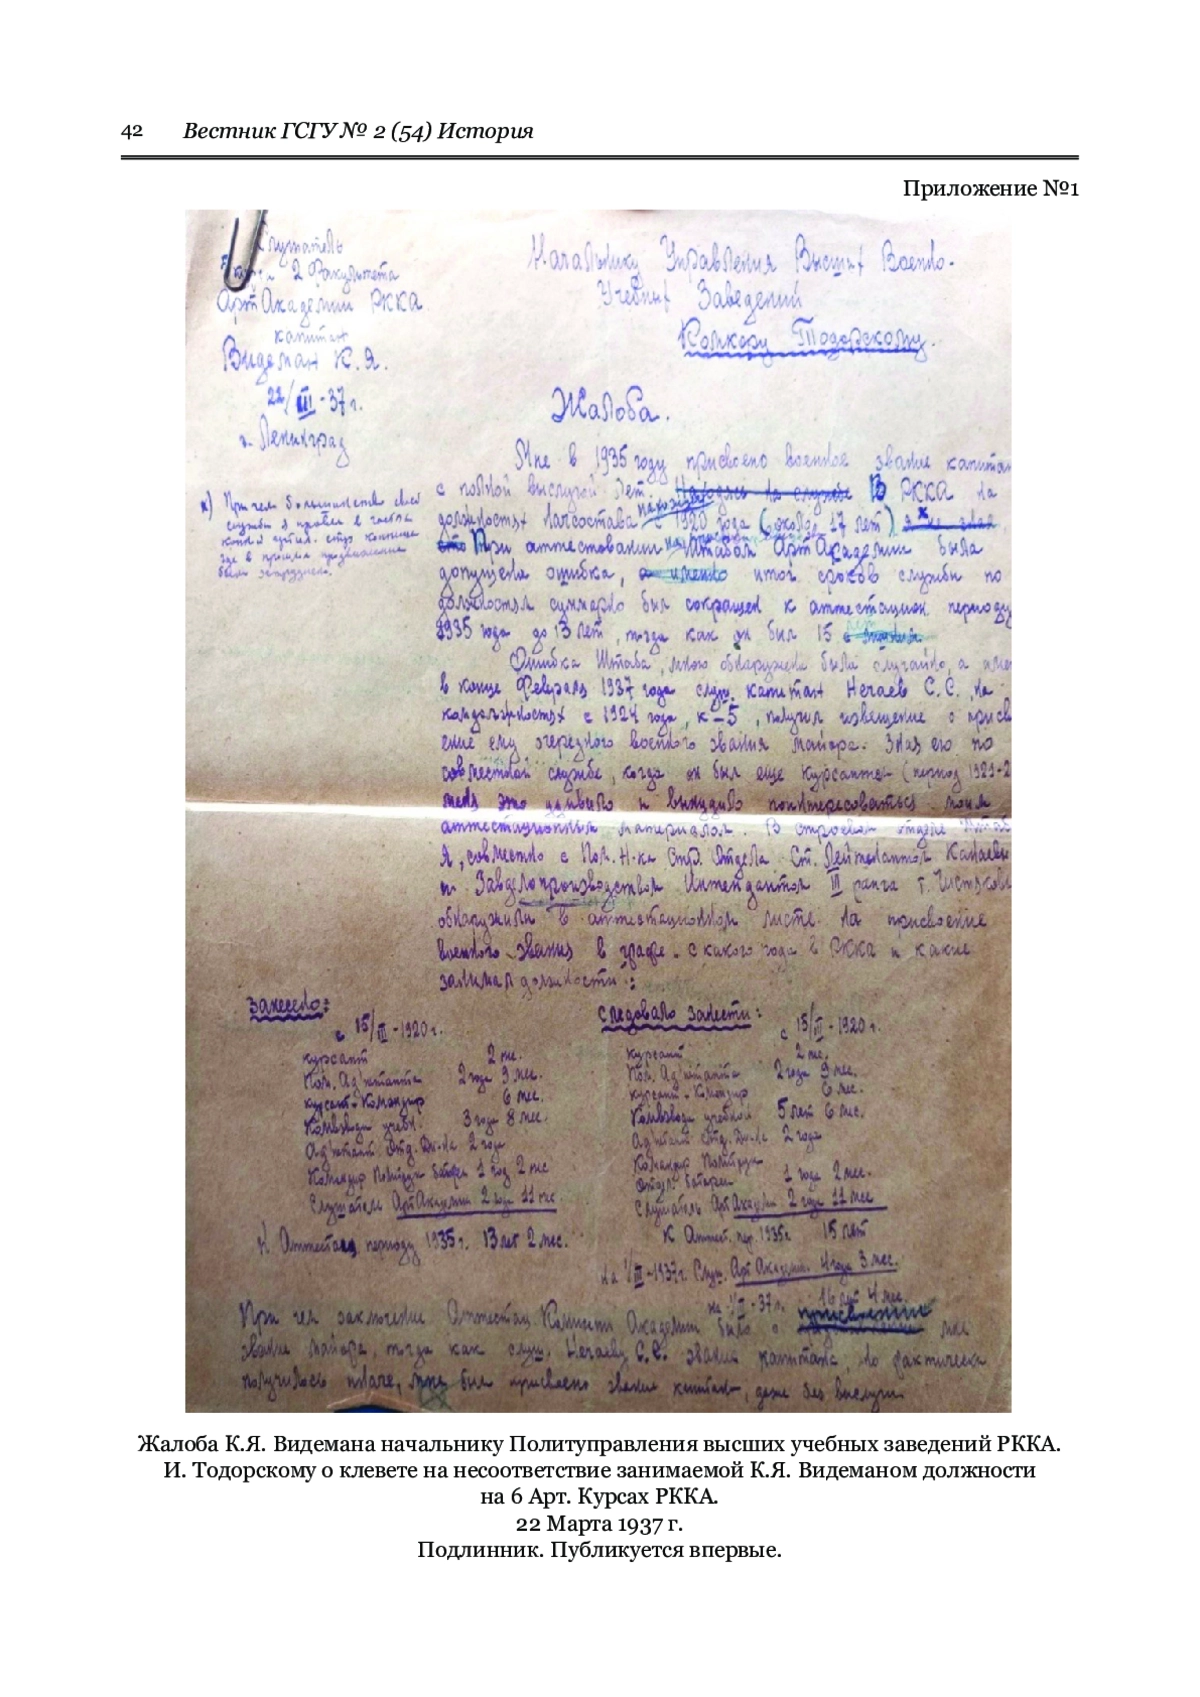 42 Вестник ГСГУ № 2 (54) История
Приложение №1
Слушатель
2 Факультета
АртАкадемии РККА
капитан
Видеман К. Я.
22/III - 37 г.
г. Ленинград
Начальнику Управления Высших Военно-
Учебных Заведений
Комкору Тодорскому.
Жалоба.
Мне в 1935 году присвоено военное звание капитан
с полной выслугой лет. Находясь на службе В РККА на
должностях начсостава с 1920 года (около 17 лет)
При аттестовании Штабом АртАкадемии была
допущена ошибка, а именно итог сроков службы по
должностям суммарно был сокращен к аттестацион. периоду
1935 года до 13 лет, тогда как он был 15
х) Причем большинство своей
службы я провел в частях
Ошибка Штаба, мною обнаружена была случайно, а име
в конце Февраля 1937 года слуш. капитан Нечаев С. С., на
комдолжностях с 1924 года, к-5, получил извещение о присв
ение ему очередного военного звания майора. Зная его по
совместной службе, когда он был еще курсантом (период 1921-2
меня это удивило и вынудило поинтересоваться моим
аттестационным материалом. В строевом отделе Штаба
Я, совместно с Пом. Н-ка Стр. Отдела Ст. Лейтенантом
и Завделопроизводством Интендантом III ранга т.
обнаружили в аттестационном листе на присвоение
военного звания в графе - с какого года в РККА и какие
занимал должности:
Занесено:
с 15/III - 1920 г.
курсант 2 ме.
Пом. Ад'ютанта 2 года 9 мес.
курсант-Командир 6 мес.
Комвзвода учебн. 3 года 8 мес.
Ад'ютант Отд. Див-на 2 года
Командир Политрук батареи 1 год 2 мес
Слушатель АртАкадемии 2 года 11 мес
К Аттестац. периоду 1935 г. 13 лет 2 мес.
Следовало занести:
с 15/III - 1920 г.
курсант 2 ме.
Пом. Ад'ютанта 2 года 9 мес.
курсант-Командир 6 мес.
Комвзвода учебной 5 лет 6 мес.
Ад'ютант Отд. Див-на 2 года
Командир Политрук
Отдел. батареи 1 год 2 мес.
Слушатель АртАкадемии 2 года 11 мес
К Аттест. пер. 1935 г. 15 лет
На 1/III-1937г. Слуш. АртАкадемии 4 года 3 мес.
на 1/III - 37 г. 16 лет 4 мес.
При чем заключение Аттестац. Комиссии Академии было о присвоении мне
звание майора, тогда как слуш. Нечаеву С. С. звание капитана, но фактически
получилось иначе, мне был присвоено звание капитан, даже без выслуги
Жалоба К.Я. Видемана начальнику Политуправления высших учебных заведений РККА.
И. Тодорскому о клевете на несоответствие занимаемой К.Я. Видеманом должности
на 6 Арт. Курсах РККА.
22 Марта 1937 г.
Подлинник. Публикуется впервые.